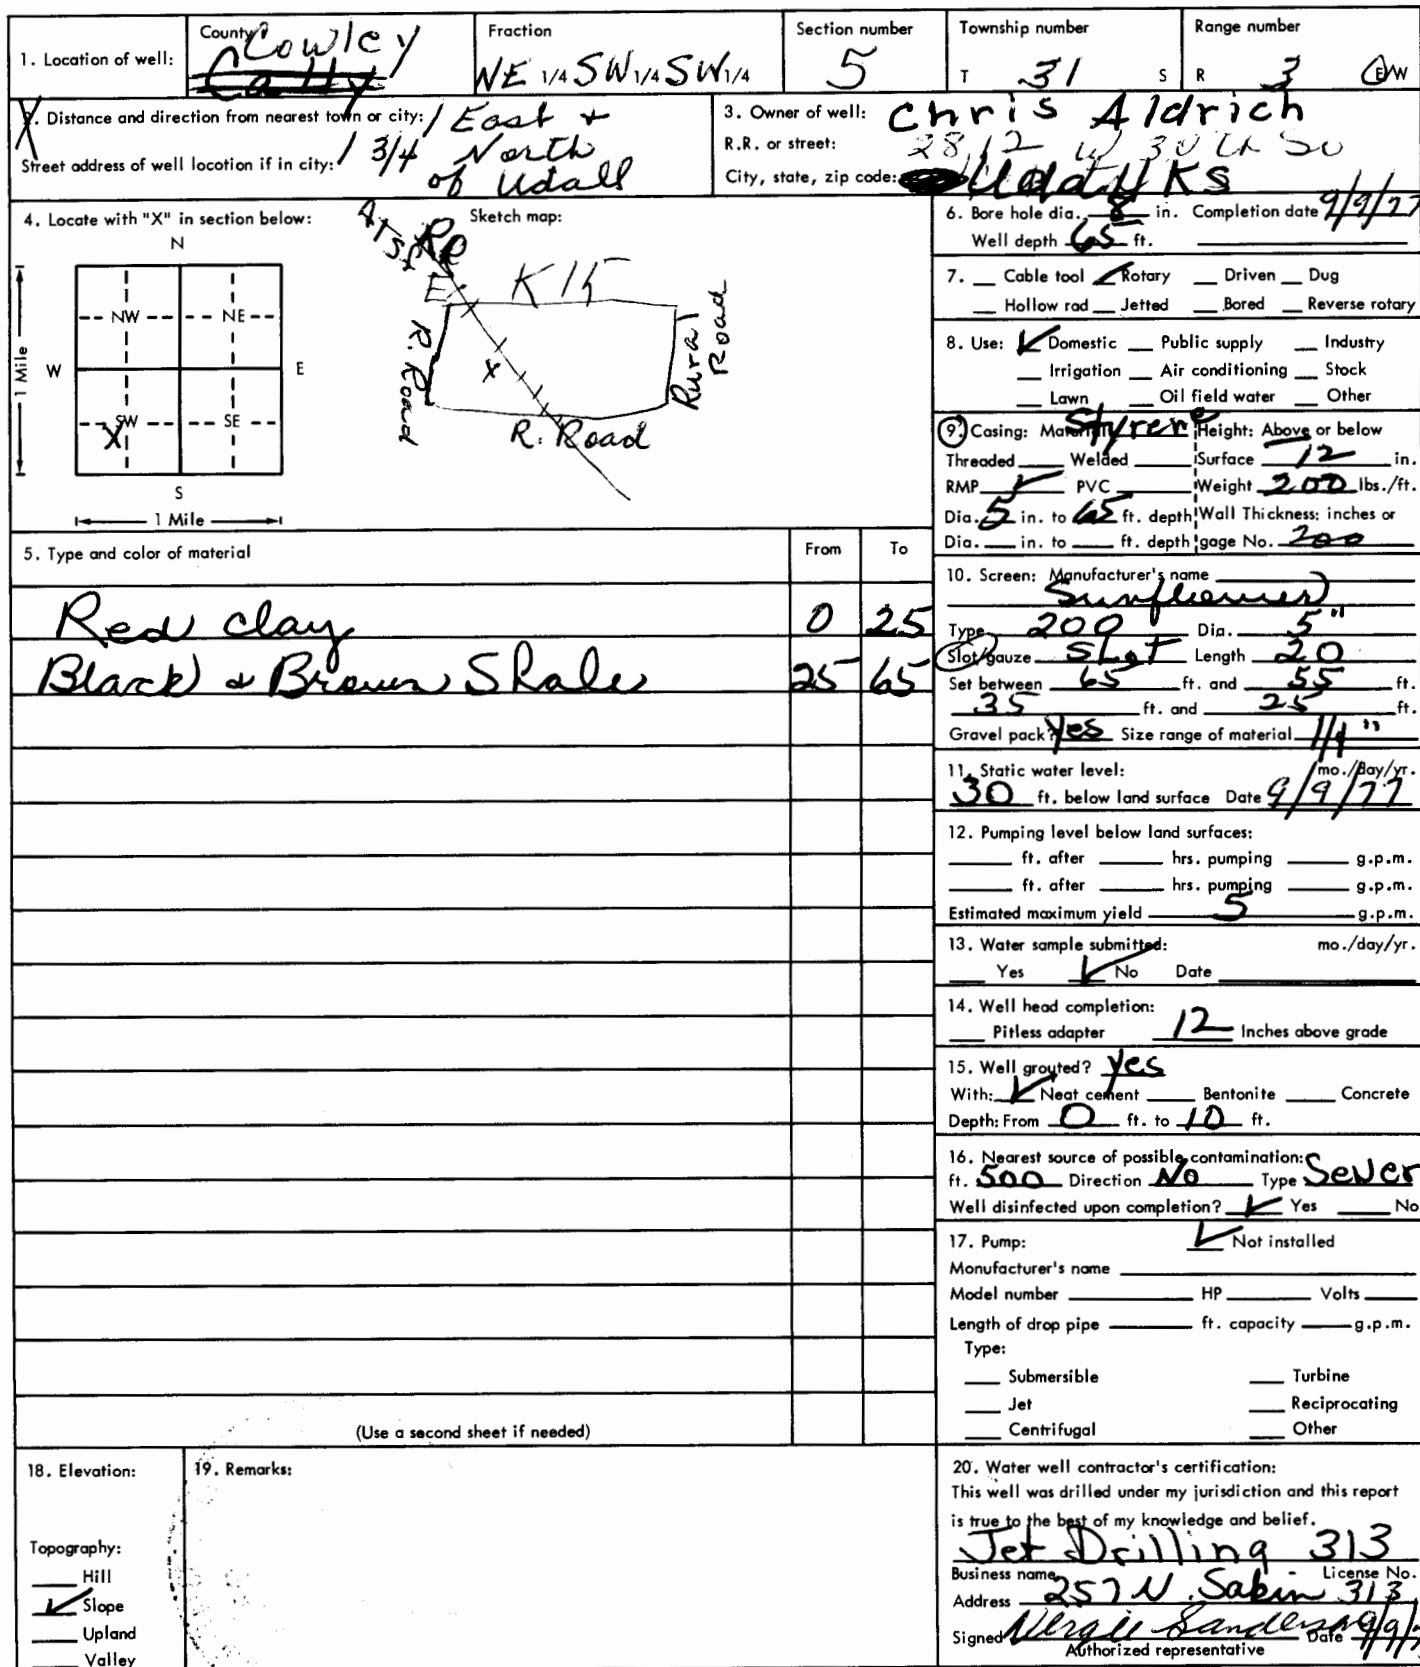 1. Location of well: County Cowley Fraction NE 1/4 SW 1/4 SW 1/4 Section number 5 Township number T 31 S Range number R 3 E/W
2. Distance and direction from nearest town or city: 1 East +
Street address of well location if in city: 1 3/4 North
of Udall
3. Owner of well: Chris Aldrich
R.R. or street: 2812 W 30th So
City, state, zip code: Udall KS
4. Locate with "X" in section below:
N
NW NE
W E
SW SE
X
S
1 Mile
1 Mile
Sketch map:
ATSF RR
K15
R. Road
X
Rural Road
R. Road
5. Type and color of material From To
Red clay 0 25
Black & Brown Shale 25 65
(Use a second sheet if needed)
6. Bore hole dia. 8 in. Completion date 9/9/77
Well depth 65 ft.
7. Cable tool Rotary Driven Dug
Hollow rod Jetted Bored Reverse rotary
8. Use: Domestic Public supply Industry
Irrigation Air conditioning Stock
Lawn Oil field water Other
9. Casing: Material Styrene Height: Above or below
Threaded Welded Surface 12 in.
RMP PVC Weight 200 lbs./ft.
Dia. 5 in. to 65 ft. depth Wall Thickness: inches or
Dia. in. to ft. depth gage No. 200
10. Screen: Manufacturer's name
Sunflower
Type 200 Dia. 5"
Slot/gauze Slot Length 20
Set between 65 ft. and 55 ft.
35 ft. and 25 ft.
Gravel pack? Yes Size range of material 1/4"
11. Static water level: mo./day/yr.
30 ft. below land surface Date 9/9/77
12. Pumping level below land surfaces:
ft. after hrs. pumping g.p.m.
ft. after hrs. pumping g.p.m.
Estimated maximum yield 5 g.p.m.
13. Water sample submitted: mo./day/yr.
Yes No Date
14. Well head completion:
Pitless adapter 12 Inches above grade
15. Well grouted? Yes
With: Neat cement Bentonite Concrete
Depth: From 0 ft. to 10 ft.
16. Nearest source of possible contamination:
ft. 500 Direction No Type Sewer
Well disinfected upon completion? Yes No
17. Pump: Not installed
Manufacturer's name
Model number HP Volts
Length of drop pipe ft. capacity g.p.m.
Type:
Submersible Turbine
Jet Reciprocating
Centrifugal Other
18. Elevation:
Topography:
Hill
Slope
Upland
Valley
19. Remarks:
20. Water well contractor's certification:
This well was drilled under my jurisdiction and this report
is true to the best of my knowledge and belief.
Jet Drilling 313
Business name License No.
Address 257 N. Sabin 313
Signed Sanders Date 9/9/7
Authorized representative